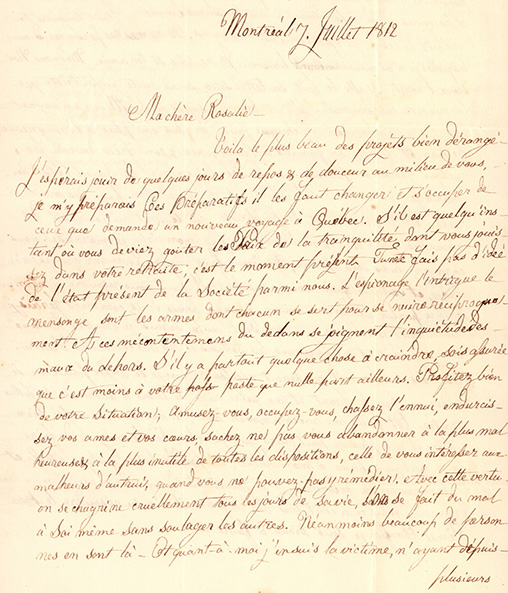 Montréal 7. Juillet 1812
Ma chère Rosalie –
Voila le plus beau des projets bien dérangé.
J'espérais jouir de quelques jours de repos & de douceur au milieu de vous,
je m'y préparais Ces Préparatifs il les faut changer et s'occuper de
ceux que demande un nouveau voyage à Quebec. S'il est quelqu'ins-
tant où vous deviez goûter les de la tranquilité, dont vous jouis-
sez dans votre retraite; c'est le moment présent. Tu n'te fais pas d'idée
de l'état présent de la Société parmi nous. L'espionage l'intrigue le
mensonge sont les armes dont chacun se sert pour se nuire réciproque-
ment. A ces mécontentemens du dedans se joignent l'inquiétude des
maux du dehors. S'il y a partout quelque chose à craindre, sois assurée
que c'est moins à votre poste que nulle part ailleurs. Profitez bien
de votre Situation; Amusez-vous, occupez-vous, chassez l'ennui, endurcis-
sez vos ames et vos cœurs, sachez ne pas vous abandonner à la plus mal
heureuse & à la plus inutile de toutes les dispositions, celle de vous intéresser aux
malheurs d'autrui, quand vous ne pouvez pas y remédier. Avec cette vertu
on se chagrine cruellement tous les jours de sa vie, on se fait du mal
à Soi même sans soulager les autres. Néanmoins beaucoup de person
nes en sont là – Et quant-à-moi j'en suis la victime, n'ayant depuis-
plusieurs